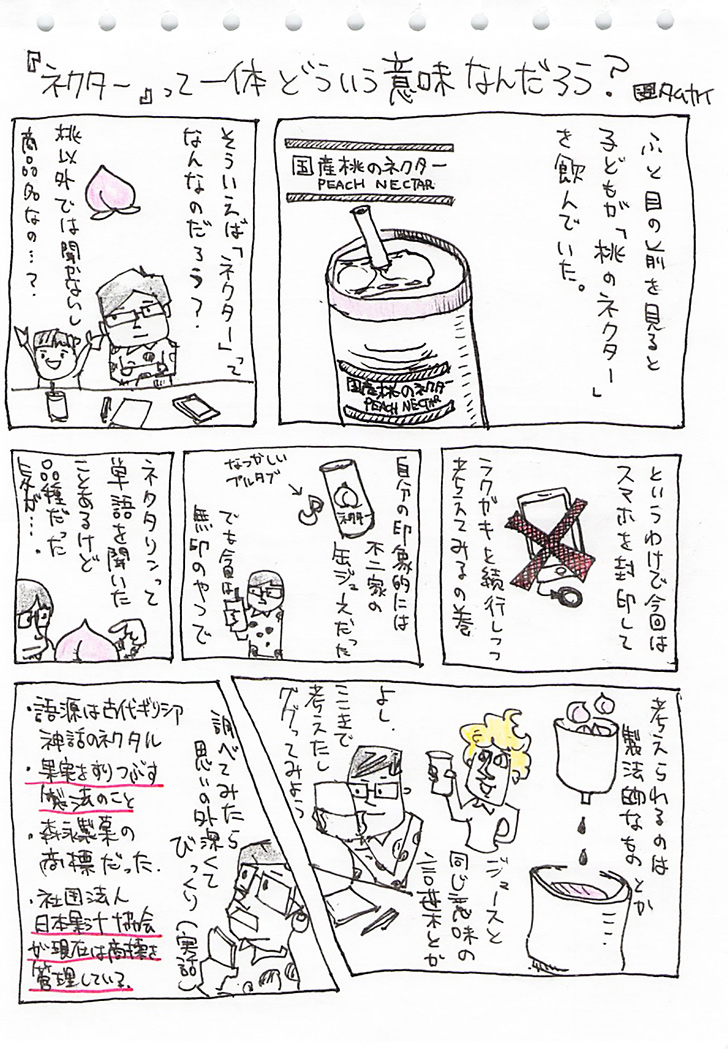 『ネクター』って一体どういう意味なんだろう?
タムカイ
ふと目の前を見ると
子どもが「桃のネクター」
を飲んでいた。
国産桃のネクター
PEACH NECTAR
国産桃のネクター
PEACH NECTAR
そういえば「ネクター」って
なんなのだろう?
桃以外では聞かないし
商品名なの…?
というわけで今回は
スマホを封印して
ラクガキを続行しつつ
考えてみるの巻
自分の印象的には
不二家の
缶ジュースだった
ネクター
なつかしい
プルタブ
でも今回は
無印のやつで
ネクタリンって
単語を聞いた
ことあるけど
品種だった
気が…。
考えられるのは
製法的なものとか
ジュースと
同じ意味の
言葉とか
よし、
ここまで
考えたし
ググってみよう
調べてみたら
思いの外深くて
びっくり(実話)
・語源は古代ギリシア
神話のネクタル
・果実をすりつぶす
製法のこと
・森永製菓の
商標だった.
・社団法人
日本果汁協会
が現在は商標を
管理している.